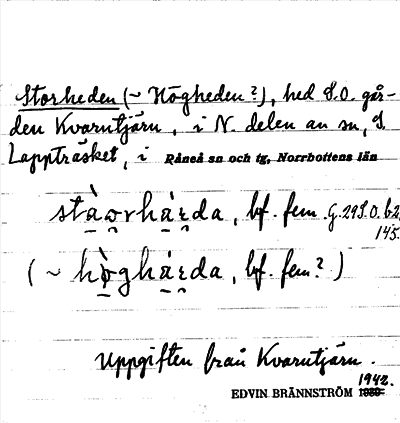 Storheden (~ Högheden?), hed S.O. går-
den Kvarntjärn, i N. delen av sn, S.
Lappträsket, i Råneå sn och tg, Norrbottens län
stàọrhạ́ṛda, bf. fem. G.29 S.O. b2,
145.
(~ hø̣̀ghạ́ṛda, bf. fem?)
Uppgiften från Kvarntjärn.
1942.
EDVIN BRÄNNSTRÖM